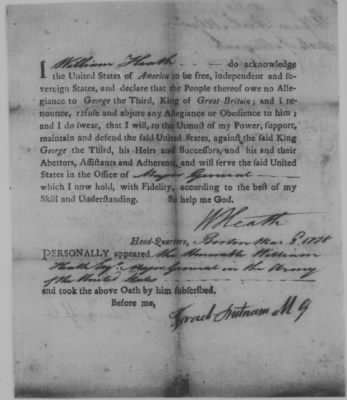 I William Heath do acknowledge
the United States of America to be free, independent and so-
vereign States, and declare that the People thereof owe no Alle-
giance to George the Third, King of Great-Britain; and I re-
nounce, refuse and abjure any Allegiance or Obedience to him;
and I do swear, that I will, to the Utmost of my Power, support,
maintain and defend the said United States, against the said King
George the Third, his Heirs and Successors, and his and their
Abettors, Assistants and Adherents, and will serve the said United
States in the Office of Major General
which I now hold, with Fidelity, according to the best of my
Skill and Understanding. So help me God.
W Heath
Head-Quarters, Boston Mar. 1778
PERSONALLY appeared the Honorable William
Heath Esqr. Major General in the Army
of the United States
and took the above Oath by him subscribed.
Before me,
Israel Putnam M G